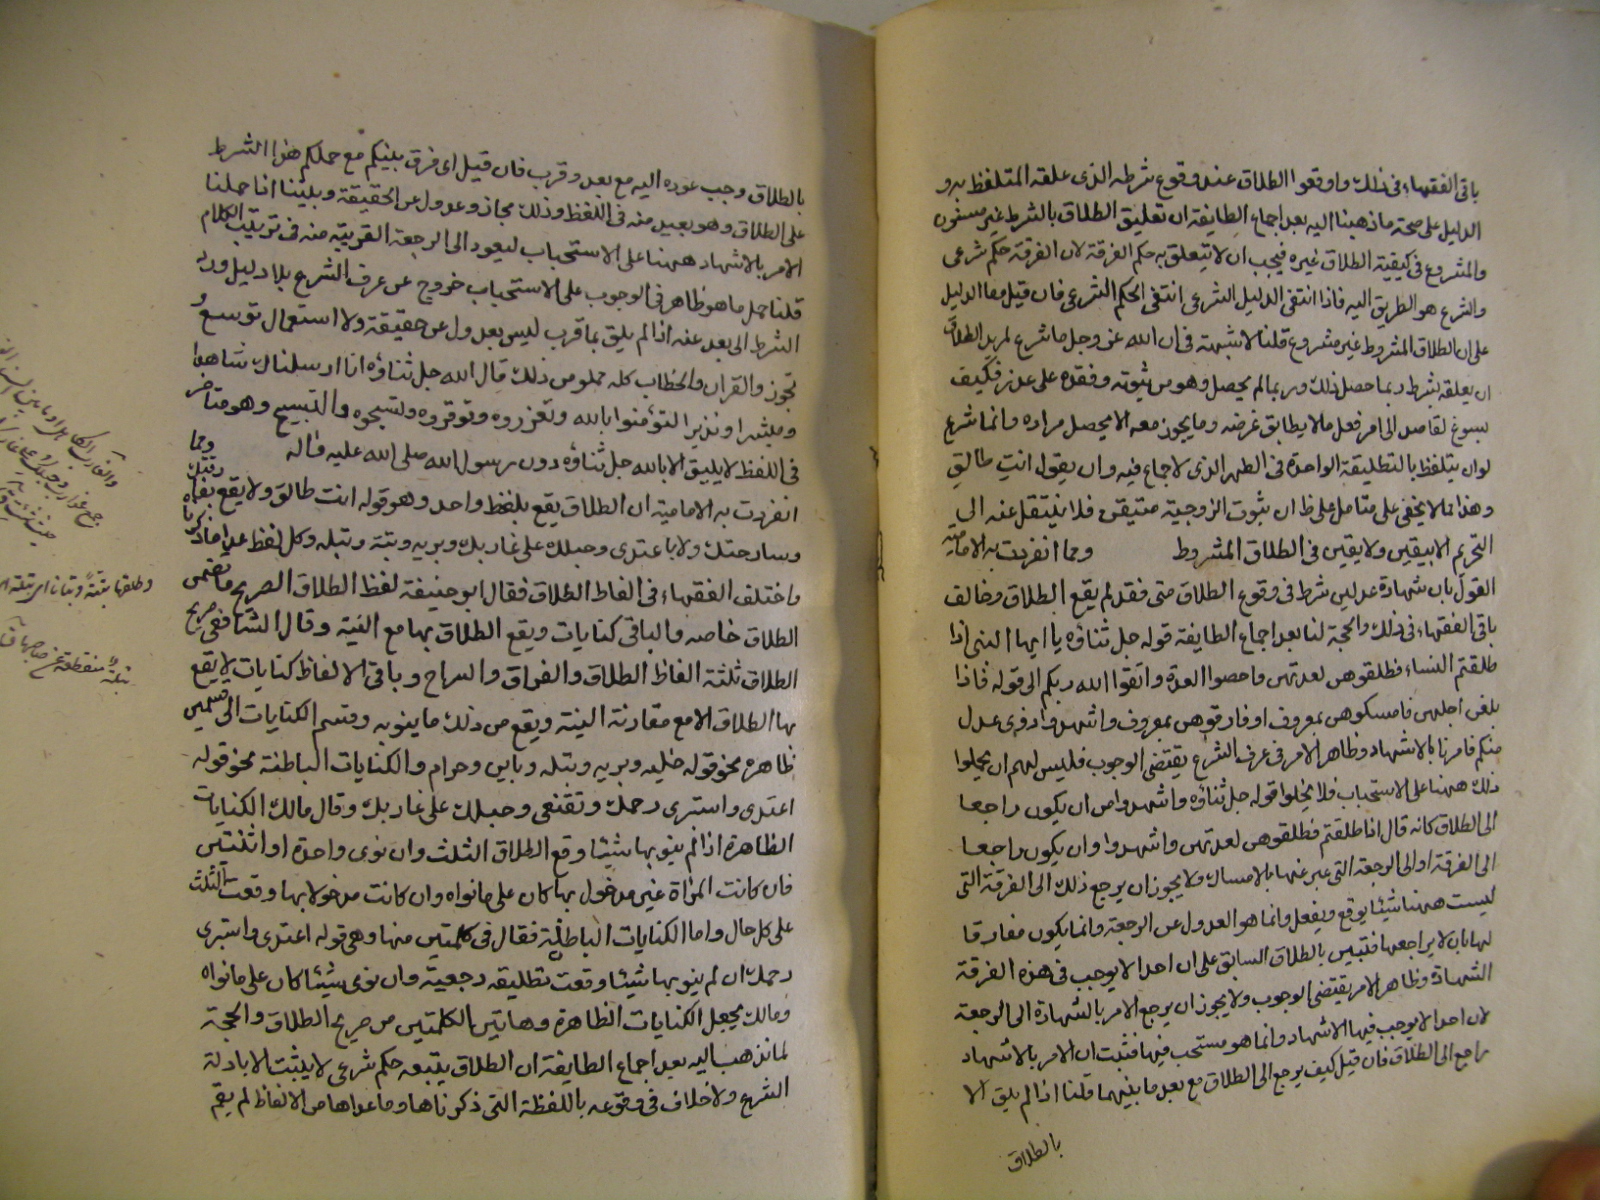 باقى الفقهاء فى ذلك واوقعوا الطلاق عند وقوع شرطه الذى علقه المتلفظ به و
الدليل على صحة ما ذهبنا اليه بعد اجماع الطايفة ان تعليق الطلاق بالشرط غير مسنون
والمشروع فى كيفية الطلاق غيره فيجب ان لا يتعلق به حكم الفرقة لان الفرقة حكم شرعى
والشرع هو الطريق اليه فاذا انتفى الدليل الشرعى انتفى الحكم الشرعى فان قيل فما الدليل
على ان الطلاق المشروط غير مشروع قلنا لا شبهة فى ان الله عز وجل ما شرع لمريد الطلاق
ان يعلقه بشرط ربما حصل ذلك وربما لم يحصل وهو من ثبوته وفقده على غرر فكيف
يسوغ لقاصد الى امر فعل ما لا يطابق غرضه وما يجوز معه الا يحصل مراده وانما شرع
لو ان يتلفظ بالتطليقة الواحدة فى الطهر الذى لا جماع فيه وان يقول انت طالق
وهذا مما لا يخفى على متامل على ظ ان ثبوت الزوجية متيقن فلا ينتقل عنه الى
التحريم الا بيقين ولا يقين فى الطلاق المشروط ومما انفردت به الامامية
القول بان شهادة عدلين شرط فى وقوع الطلاق متى فقد لم يقع الطلاق وخالف
باقى الفقهاء فى ذلك والحجة لنا بعد اجماع الطايفة قوله جل ثناؤه يا ايها النبى اذا
طلقتم النساء فطلقوهن لعدتهن واحصوا العدة واتقوا الله ربكم الى قوله فاذا
بلغن اجلهن فامسكوهن بمعروف او فارقوهن بمعروف واشهدوا ذوى عدل
منكم فامرنا بالاشهاد وظاهر الامر فى عرف الشرع يقتضى الوجوب فليس لهم ان يحملوا
ذلك ههنا على الاستحباب فلا يخلوا قوله جل ثناؤه واشهدوا من ان يكون راجعا
الى الطلاق كانه قال اذا طلقتم فطلقوهن لعدتهن واشهدوا وان يكون راجعا
الى الفرقة او الى الرجعة التى عبر عنها بالامساك ولا يجوز ان يرجع ذلك الى الفرقة التى
ليست ههنا شيئا يوقع ويفعل وانما هو العدول عن الرجعة وانما يكون مفارقا
لها بان لا يراجعها فتبين بالطلاق السابق على ان احدا لا يوجب فى هذه الفرقة
الشهادة وظاهر الامر يقتضى الوجوب ولا يجوز ان يرجع الامر بالشهادة الى الرجعة
لان احدا لا يوجب فيها الاشهاد وانما هو مستحب فيها فثبت ان الامر بالاشهاد
راجع الى الطلاق فان قيل كيف يرجع الى الطلاق مع بعد ما بينهما قلنا اذا لم يلق الا
بالطلاق
بالطلاق وجب عوده اليه مع بعد وقرب فان قيل اى فرق بينكم مع حملكم هذا الشرط
على الطلاق وهو بعيد منه فى اللفظ وذلك مجاز وعدول عن الحقيقة وبيننا اذا حملنا
الامر بالاشهاد ههنا على الاستحباب ليعود الى الرجعة القريبة منه فى ترتيب الكلام
قلنا حمل ما هو ظاهر فى الوجوب على الاستحباب خروج عن عرف الشرع بلا دليل ورد
الشرط الى بعد عنه اذا لم يلق بما قرب ليس بعدول عن حقيقة ولا استعمال توسع و
تجوز والقران والخطاب كله مملو من ذلك قال الله جل ثناؤه انا ارسلناك شاهدا
ومبشرا ونذيرا لتؤمنوا بالله وتعزروه وتوقروه وتسبحوه والتسبيح وهو متاخر
فى اللفظ لا يليق الا بالله جل ثناؤه دون رسول الله صلى الله عليه واله ومما
انفردت به الامامية ان الطلاق يقع بلفظ واحد وهو قوله انت طالق ولا يقع بفارقتك
وسارحتك ولا باعتدى وحبلك على غاربك وبرية وبتة وبتلة وكل لفظ عدا ما ذكرناه
واختلف الفقهاء فى الفاظ الطلاق فقال ابو حنيفة لفظ الطلاق الصريح ما تضمن
الطلاق خاصة والباقى كنايات ويقع الطلاق بها مع النية وقال الشافعى صريح
الطلاق ثلثة الفاظ الطلاق والفراق والسراح وباقى الالفاظ كنايات لا يقع
بها الطلاق الا مع مقارنة النية ويقع من ذلك ما ينويه وقسم الكنايات الى قسمين
ظاهرة نحو قوله خلية وبرية وبتلة وباين وحرام والكنايات الباطنة نحو قوله
اعتدى واستبرى رحمك وتقنعى وحبلك على غاربك وقال مالك الكنايات
الظاهرة اذا لم ينو بها شيئا وقع الطلاق الثلث وان نوى واحدة او اثنتين
فان كانت المراة غير مدخول بها كان على ما نواه وان كانت مدخولا بها وقعت الثلث
على كل حال واما الكنايات الباطنة فقال فى كلمتين منها وهى قوله اعتدى واستبرى
رحمك ان لم ينو بها شيئا وقعت تطليقة رجعية وان نوى شيئا كان على ما نواه
ومالك يجعل الكنايات الظاهرة وهاتين الكلمتين من صريح الطلاق والحجة
لما نذهب اليه بعد اجماع الطايفة ان الطلاق يتبعه حكم شرعى لا يثبت الا بادلة
الشرع ولا خلاف فى وقوعه باللفظة التى ذكرناها وما عداها من الالفاظ لم يقم
وطلقها بتة وبتاتا اى بتلة
بتلة منقطعة عن صاحبها